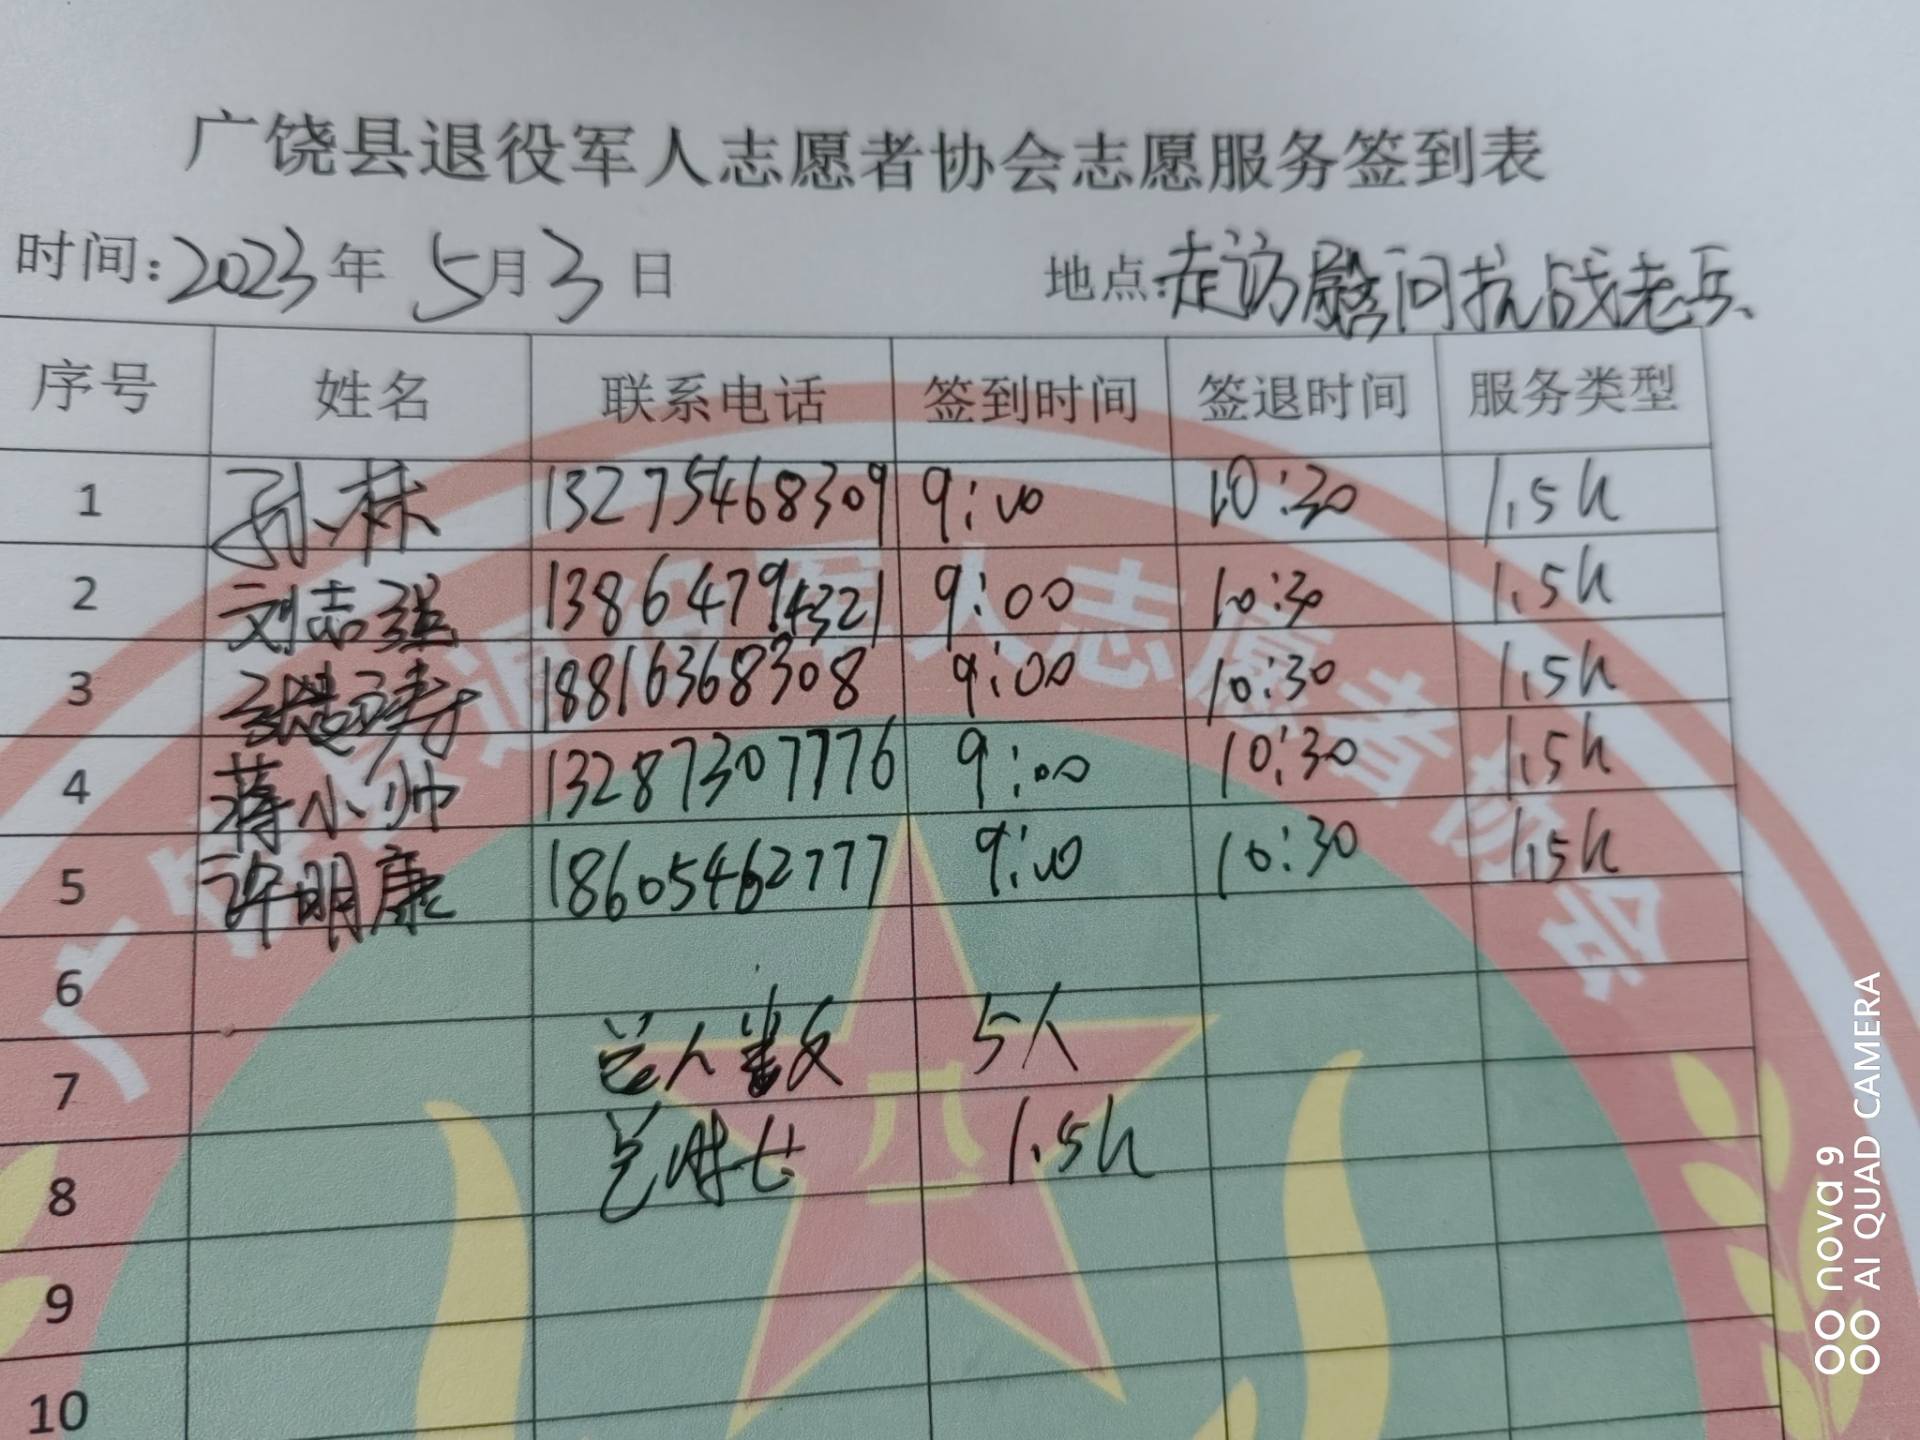 广饶县退役军人志愿者协会志愿服务签到表
时间:2023年5月3日 地点:走访慰问抗战老兵、
序号 姓名 联系电话 签到时间 签退时间 服务类型
1 孙林 13275468309 9:00 10:30 1.5h
2 刘志强 13864794321 9:00 10:30 1.5h
3 18816368308 9:00 10:30 1.5h
4 蒋小帅 13287307776 9:00 10:30 1.5h
5 许明康 18605462777 9:00 10:30 1.5h
6
7 总人数 5人
8 总时长 1.5h
9
10
广饶县退役军人志愿者协会
八一
nova 9
AI QUAD CAMERA